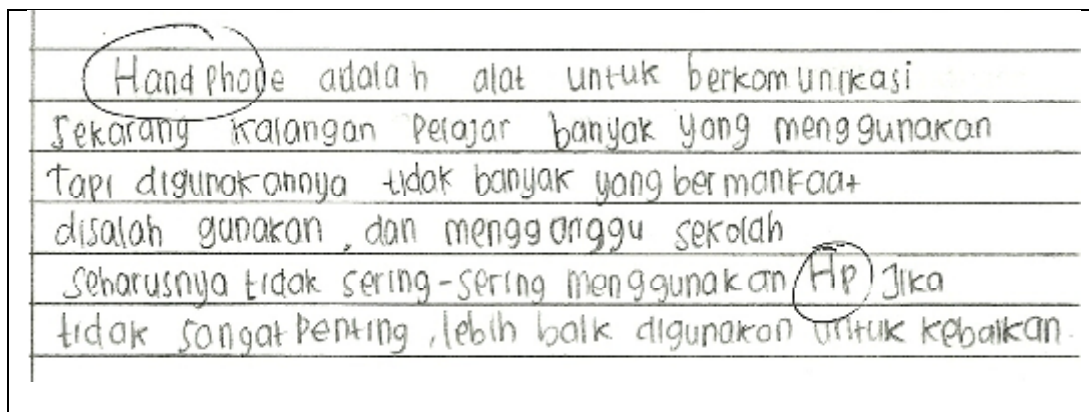 Handphone adalah alat untuk berkomunikasi
sekarang kalangan pelajar banyak yang menggunakan
tapi digunakannya tidak banyak yang bermanfaat
disalah gunakan, dan mengganggu sekolah
seharusnya tidak sering-sering menggunakan Hp Jika
tidak sangat penting, lebih baik digunakan untuk kebaikan.